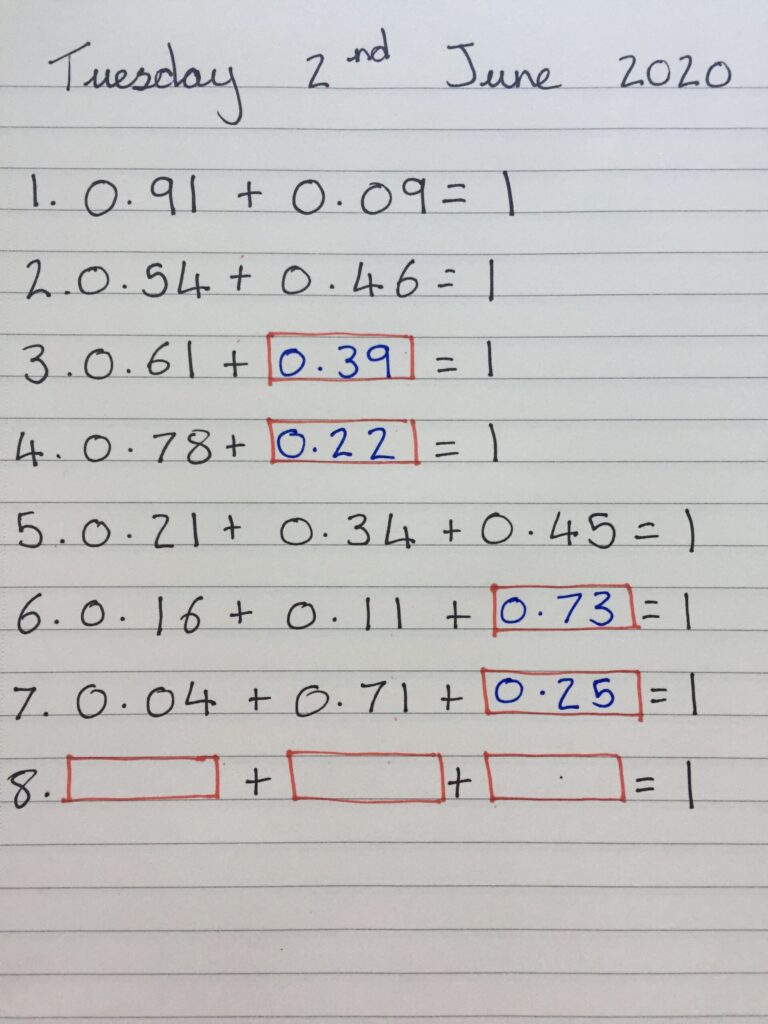 Tuesday 2nd June 2020
1. 0.91 + 0.09 = 1
2. 0.54 + 0.46 = 1
3. 0.61 + 0.39 = 1
4. 0.78 + 0.22 = 1
5. 0.21 + 0.34 + 0.45 = 1
6. 0.16 + 0.11 + 0.73 = 1
7. 0.04 + 0.71 + 0.25 = 1
8. + + = 1